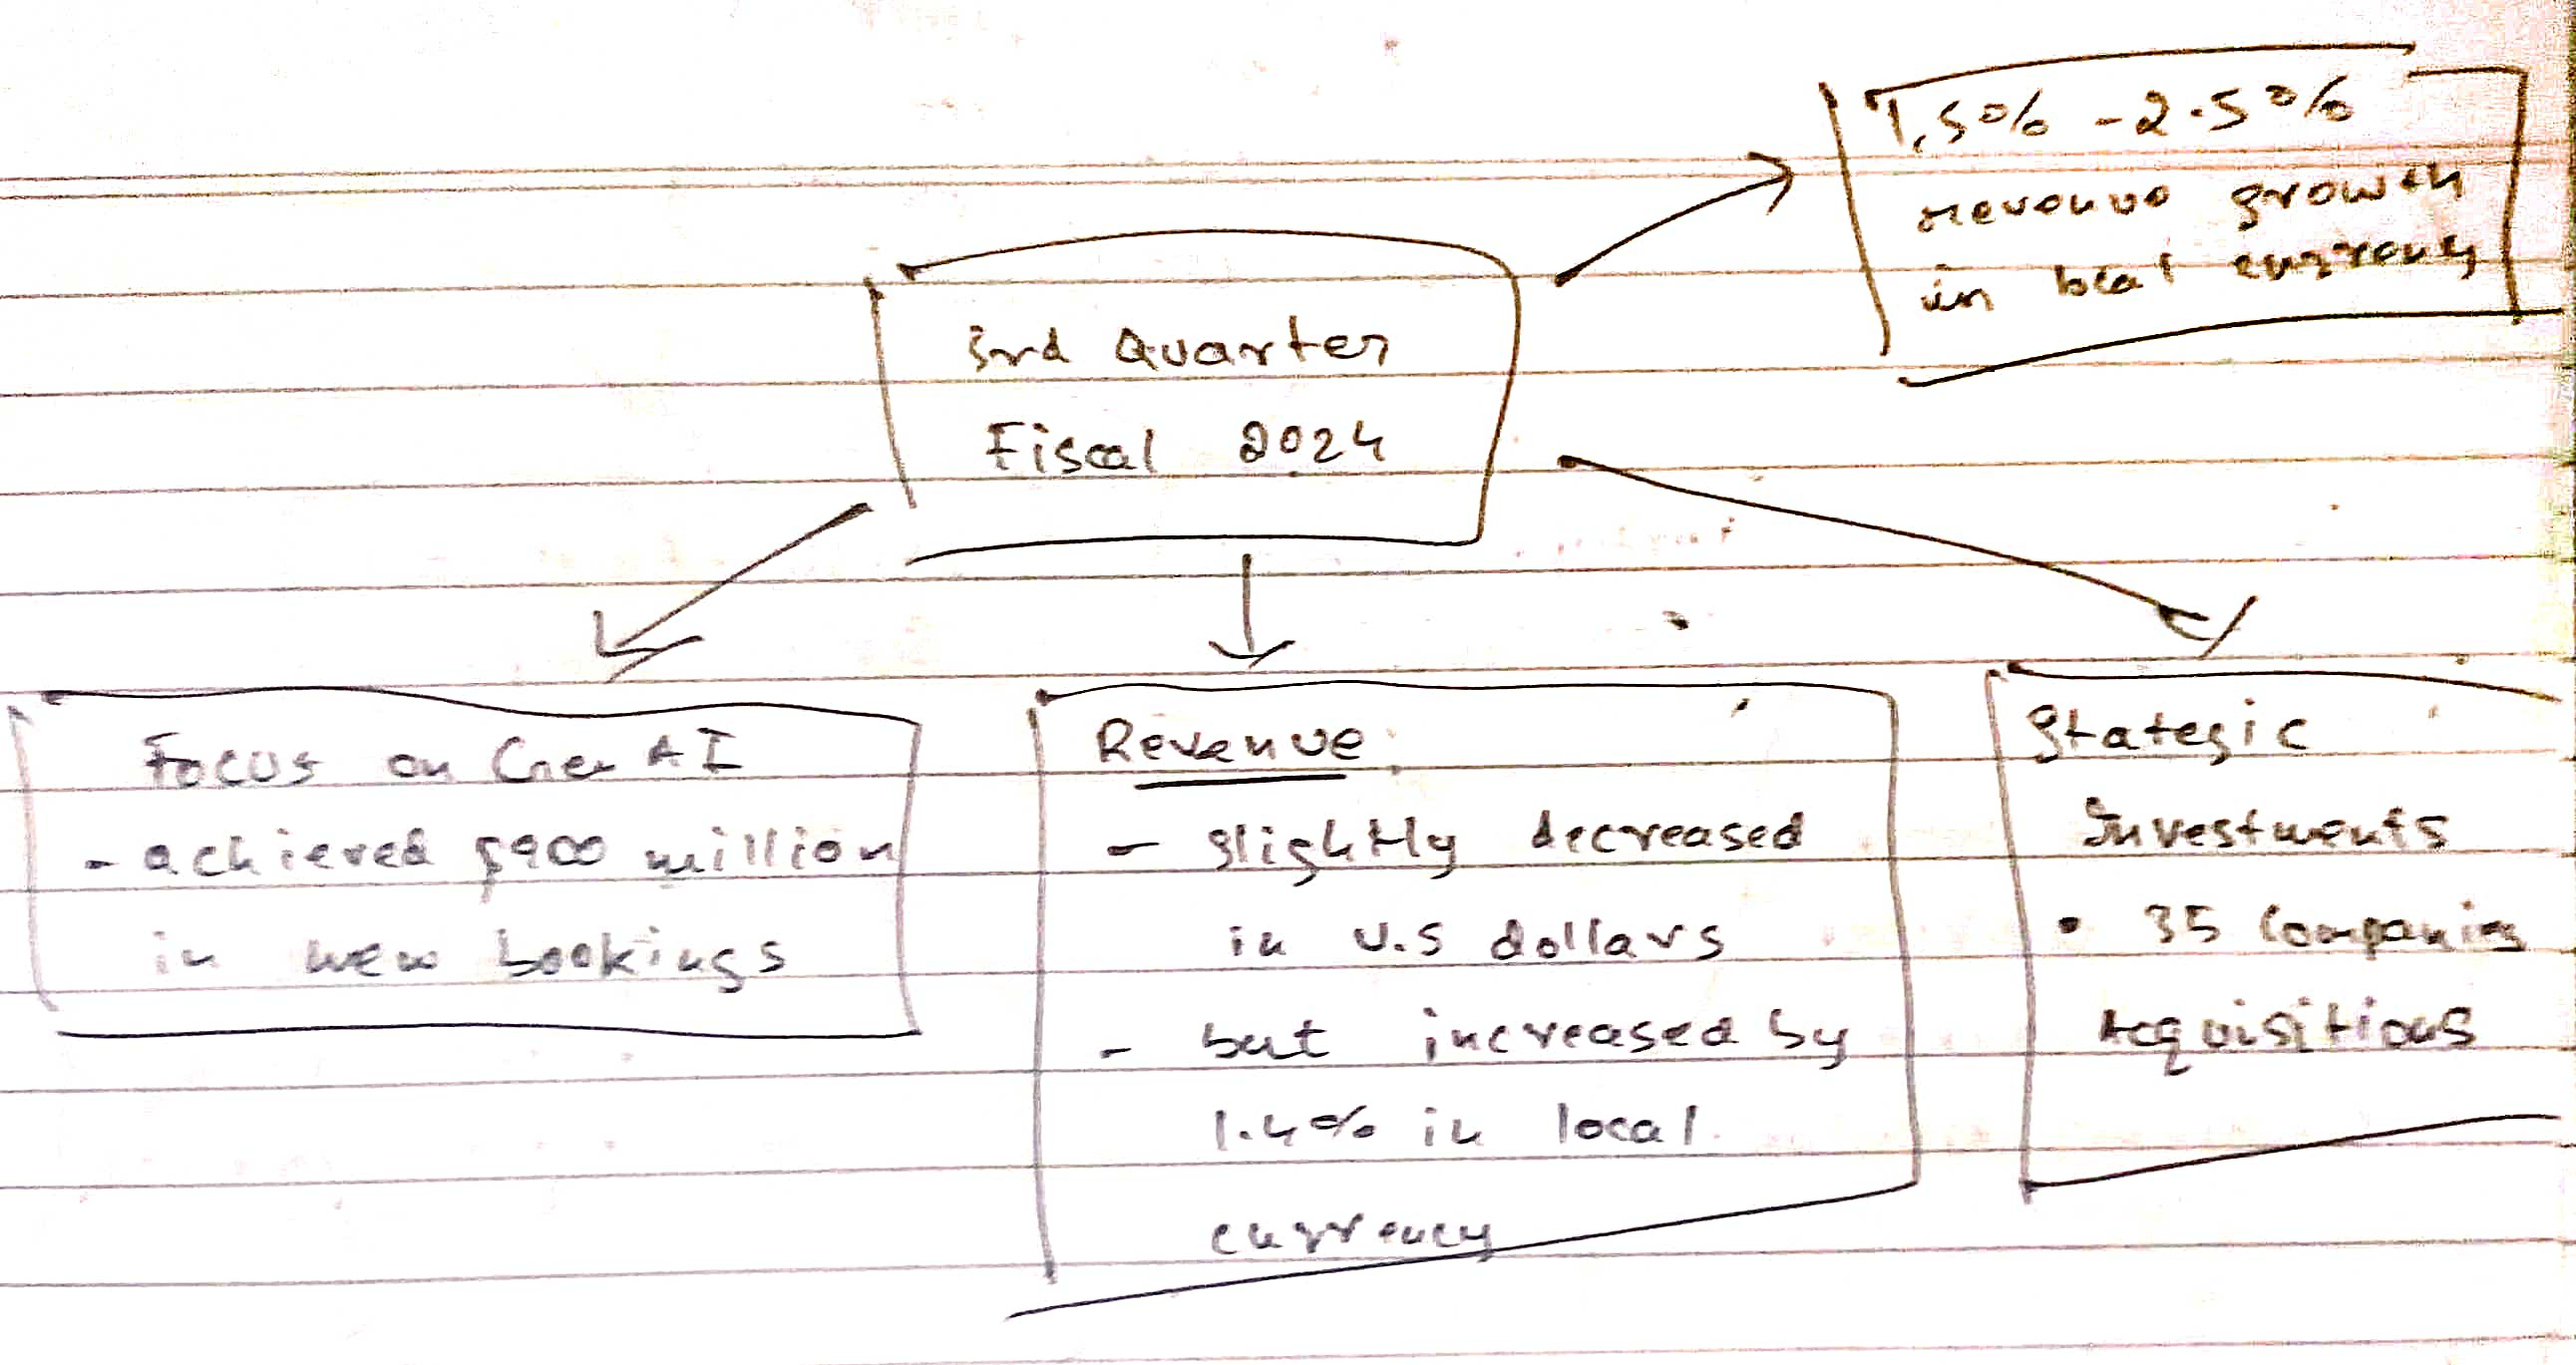 1.5% - 2.5%
revenue growth
in local currency
3rd Quarter
Fiscal 2024
Focus on Gen AI
- achieved $900 million
in new bookings
Revenue:
- slightly decreased
in U.S dollars
- but increased by
1.4% in local
currency
Stategic
Investments
• 35 Companies
Acquisitions